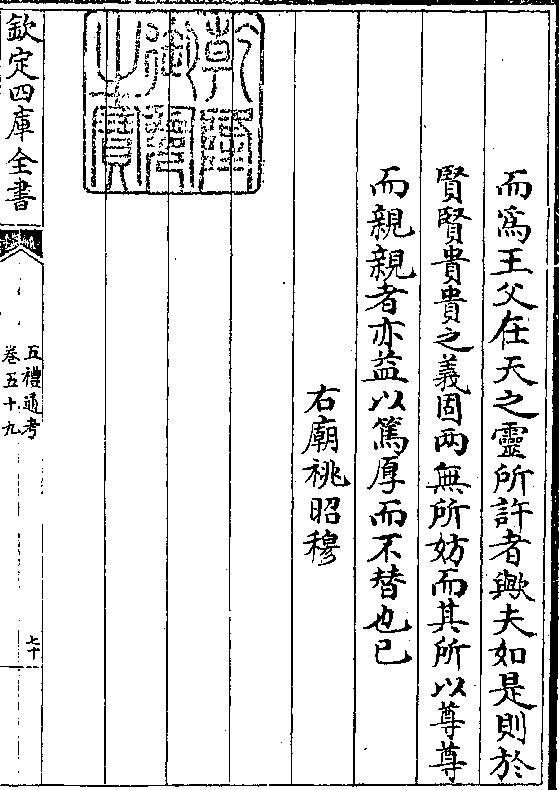 而爲王父在天之靈所許者歟夫如是則於
賢賢貴貴之義固两無所妨而其所以尊尊
而親親者亦益以篤厚而不替也已
右廟祧昭穆
乾隆御覽之寶
欽定四庫全書
五禮通考
卷五十九
七十